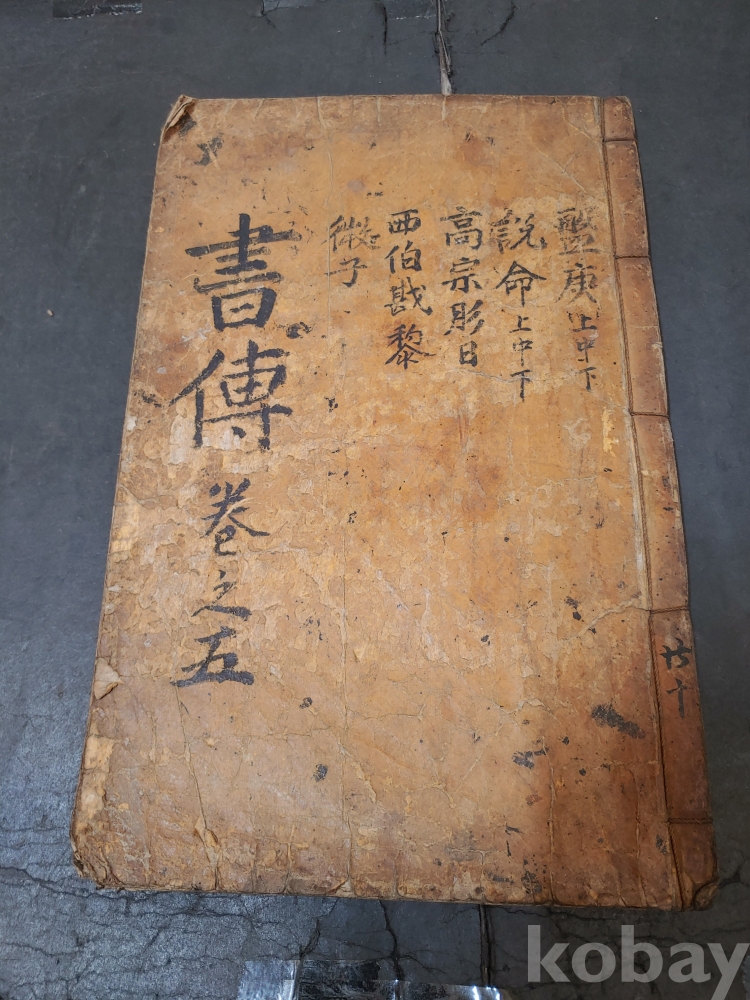 盤庚上中下
說命上中下
高宗肜日
西伯戡黎
微子
書傳卷之五
共十
kobay